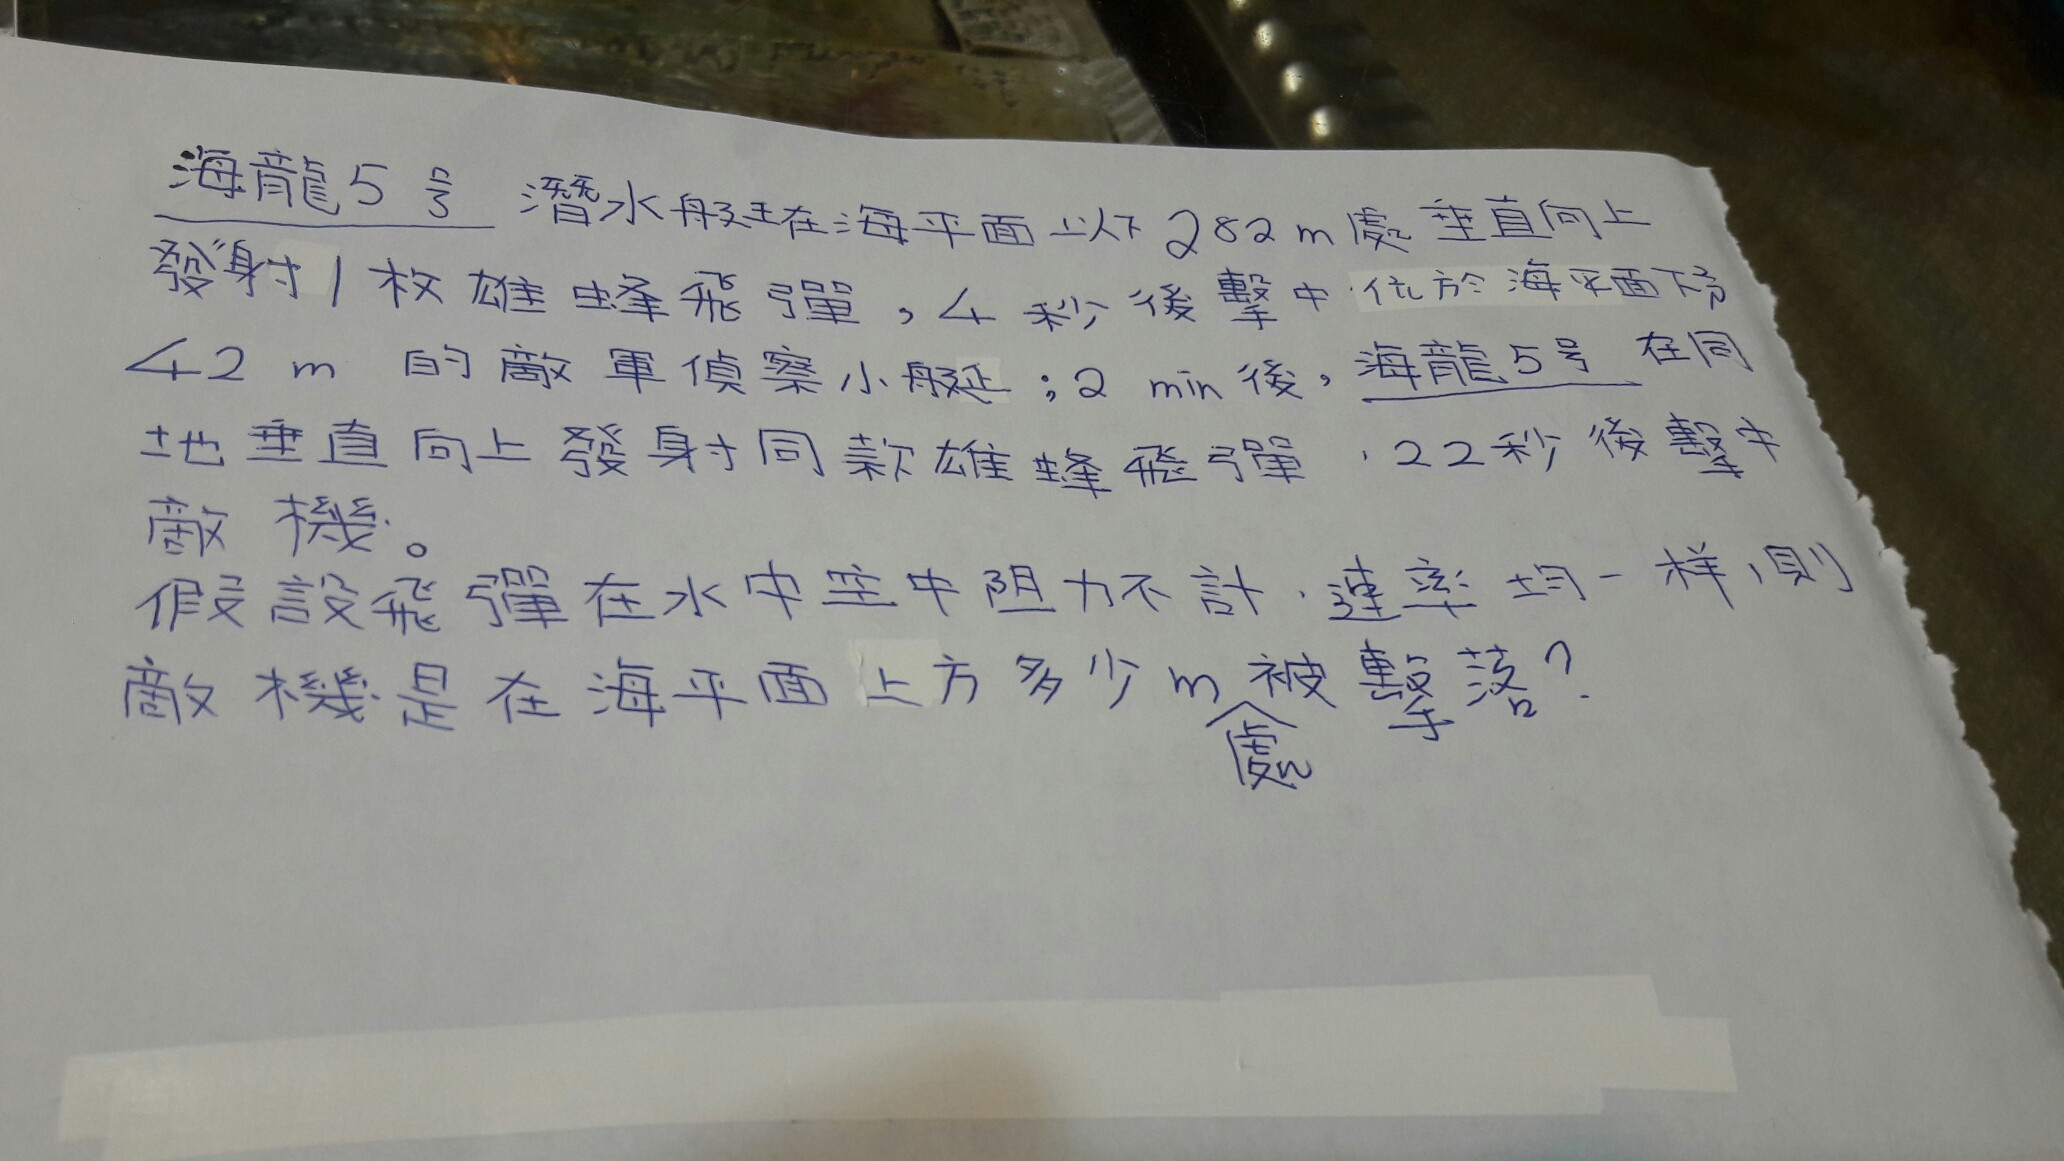 海龍5号 潛水艇在海平面以下282m處垂直向上
發射1枚雄蜂飛彈，4秒後擊中位於海平面下方
42m的敵軍偵察小艇；2min後，海龍5号在同
地垂直向上發射同款雄蜂飛彈，22秒後擊中
敵機。
假設飛彈在水中空中阻力不計，速率均一样，則
敵機是在海平面上方多少m處被擊落？